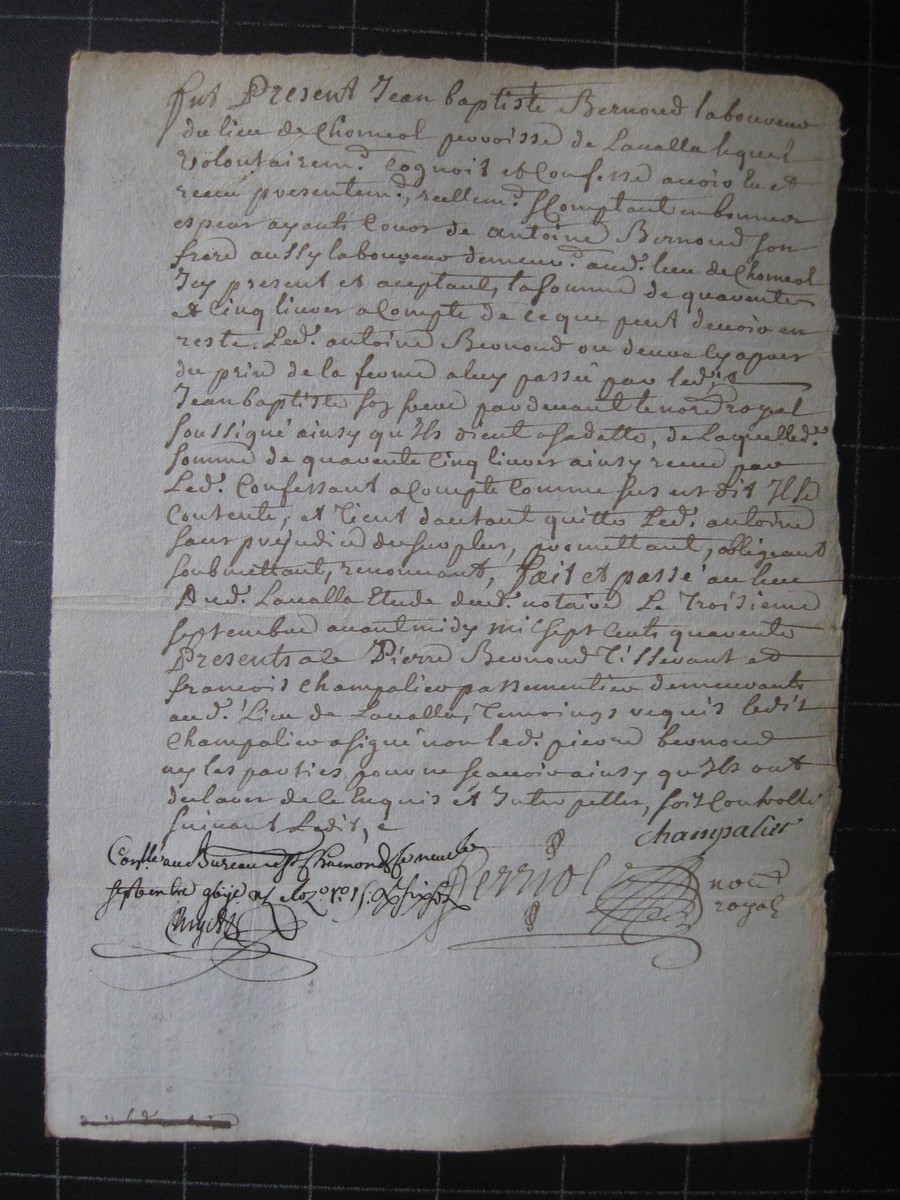 fut Present Jean baptiste Bernoud laboureur
du lieu de Chomeol parroisse de Lavalla lequel
volontairem.t Cognoit et Confesse avoir eu et
receu presentem.t, reellem.t & Comptant en bonnes
especes ayants Cours de antoine Bernoud son
frere aussy laboureur demeur.t aud.t lieu de Chomeol
Icy present et aceptant, la somme de quarante
et Cinq livres a Compte de ce que peut devoir en
reste Led.t antoine Bernoud ou devra cy apres
du prix de la ferme a luy passée par led.it
Jean baptiste son frere pardevant le no.re royal
soussigné ainsy qu'ils dient a sa datte, de Laquelle d.e
somme de quarante Cinq livres ainsy receue par
Led.t Confessant a Compte Comme sus est dit Il se
Contente, et tient dautant quitte Led.t antoine
sans prejudice du surplus, promettant, obligeant
soubmettant, renonçant, fait et passé au lieu
dud.t Lavalla Etude dud.t notaire Le Troisieme
septembre avant midy mil sept Cents quarante
Presents a ce Pierre Bernoud Tisserant et
francois Champalier passementier demeurants
aud.t Lieu de Lavalla, Temoings requis ledit
Champalier a signé non led.t pierre bernoud
ny les parties pour ne scavoir ainsy qu'ils ont
declarer de ce Enquis et Interpeller, soit Controllé
suivant Ledit, e
Champalier
Con.llé au Bureau de St Chamond le neuf
septembre
Perriol
no.re
royal